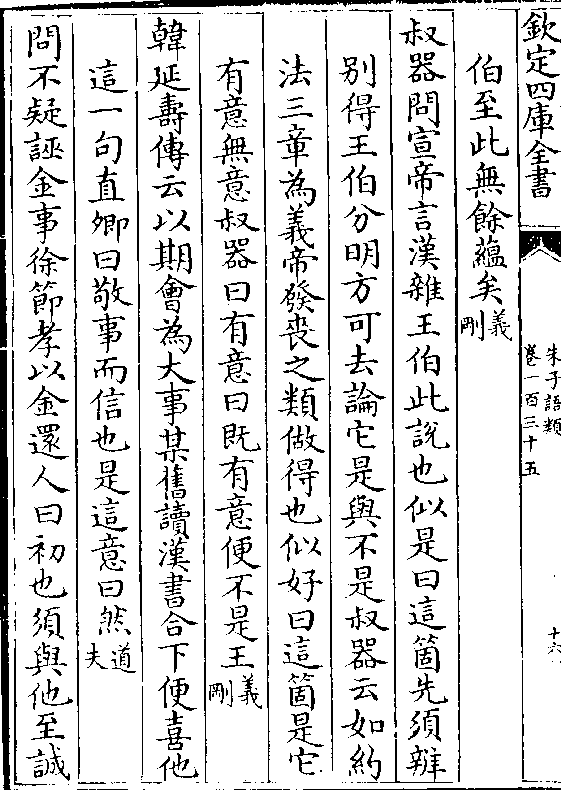 欽定四庫全書
朱子語類
卷一百三十五
十六
伯至此無餘蘊矣義剛
叔器問宣帝言漢雜王伯此說也似是曰這箇先須辨
别得王伯分明方可去論它是與不是叔器云如約
法三章為義帝發喪之類做得也似好曰這箇是它
有意無意叔器曰有意曰既有意便不是王義剛
韓延壽傳云以期會為大事某舊讀漢書合下便喜他
這一句直卿曰敬事而信也是這意曰然道夫
問不疑誣金事徐節孝以金還人曰初也須與他至誠